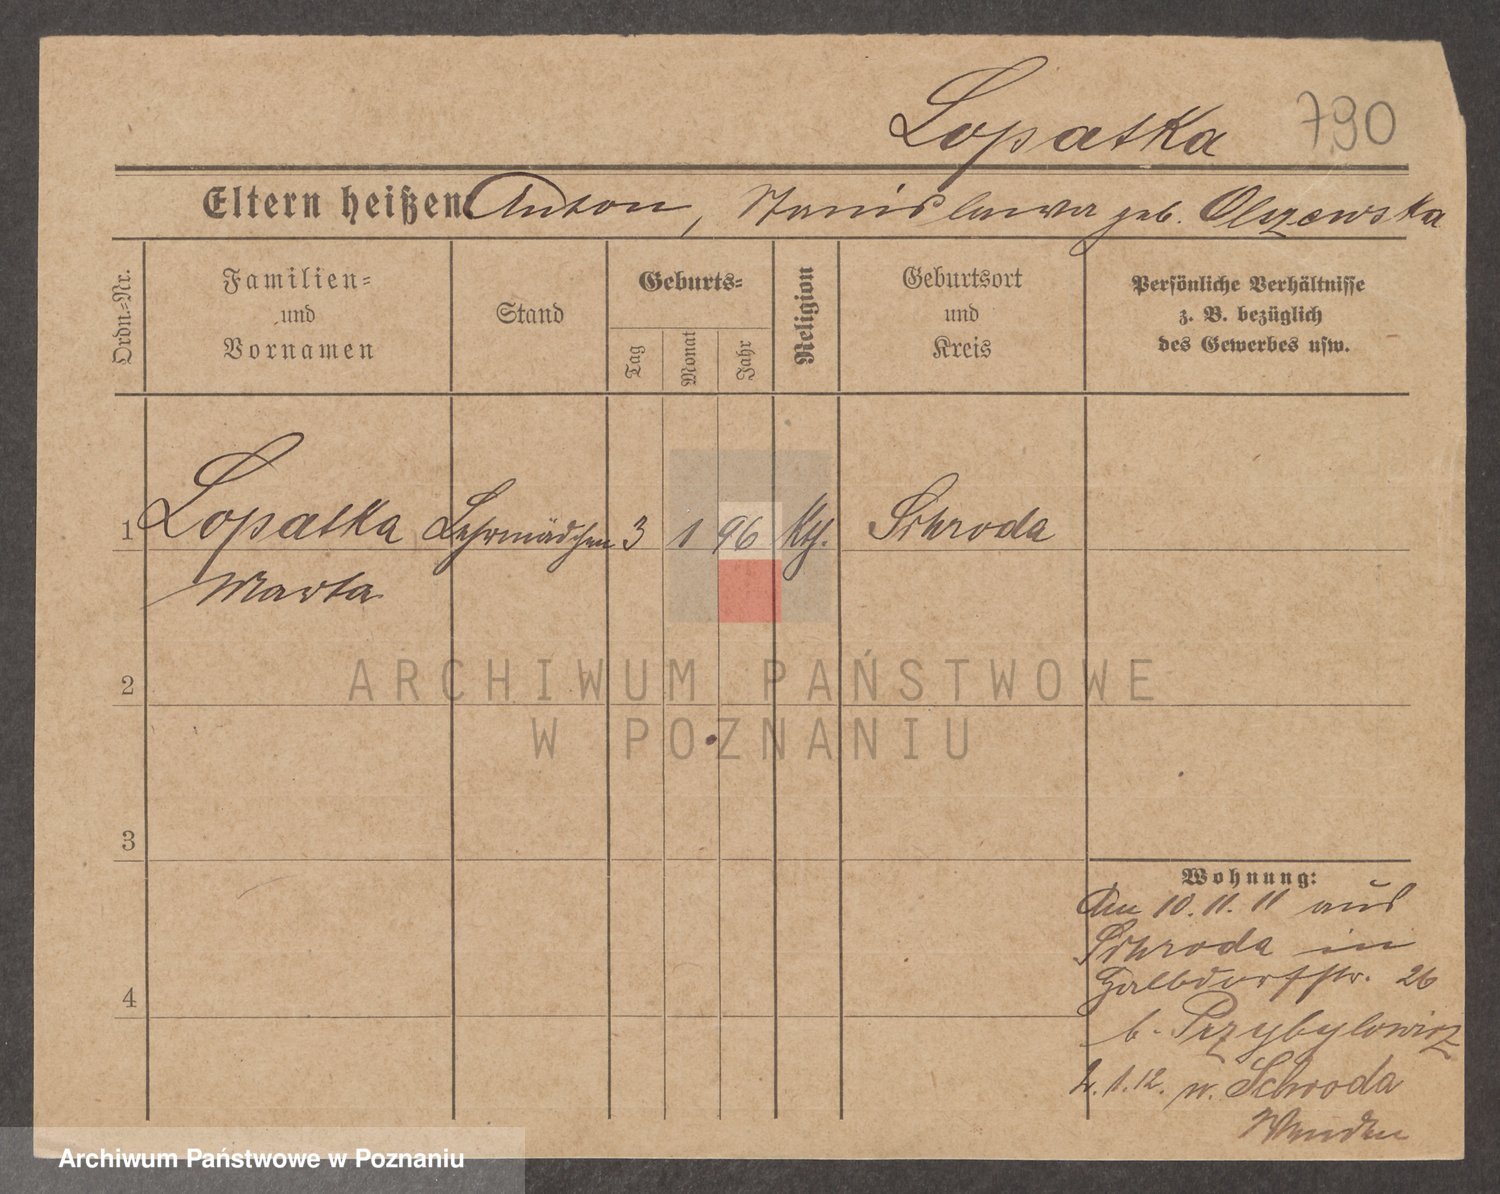 Lopatka 790
Eltern heißen Anton, Stanislawa geb. Olszewska
Ordn.-Nr.
Familien-
und
Vornamen
Stand
Geburts-
Tag
Monat
Jahr
Religion
Geburtsort
und
Kreis
Persönliche Verhältnisse
z. B. bezüglich
des Gewerbes usw.
1 Lopatka Lehrmädchen 3 1 96 Kth. Schroda
Marta
2
3
4
Wohnung:
Am 10. 11. 11 aus
Schroda in
Halbdorfstr. 26
b. Przybylowicz
2. 1. 12. n. Schroda
ARCHIWUM PAŃSTWOWE
W POZNANIU
Archiwum Państwowe w Poznaniu